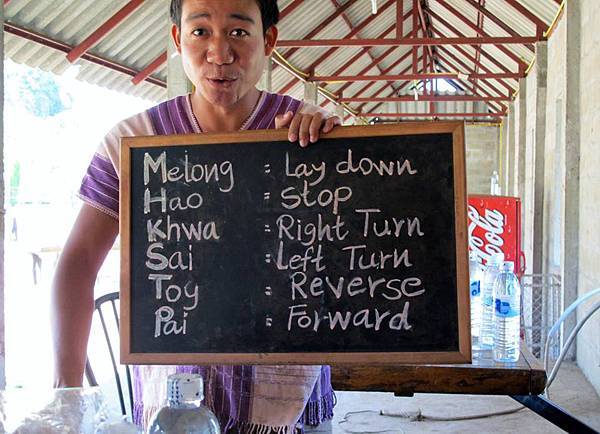 Melong = Lay down
Hao = Stop
Khwa = Right Turn
Sai = Left Turn
Toy = Reverse
Pai = Forward
Coca-Cola